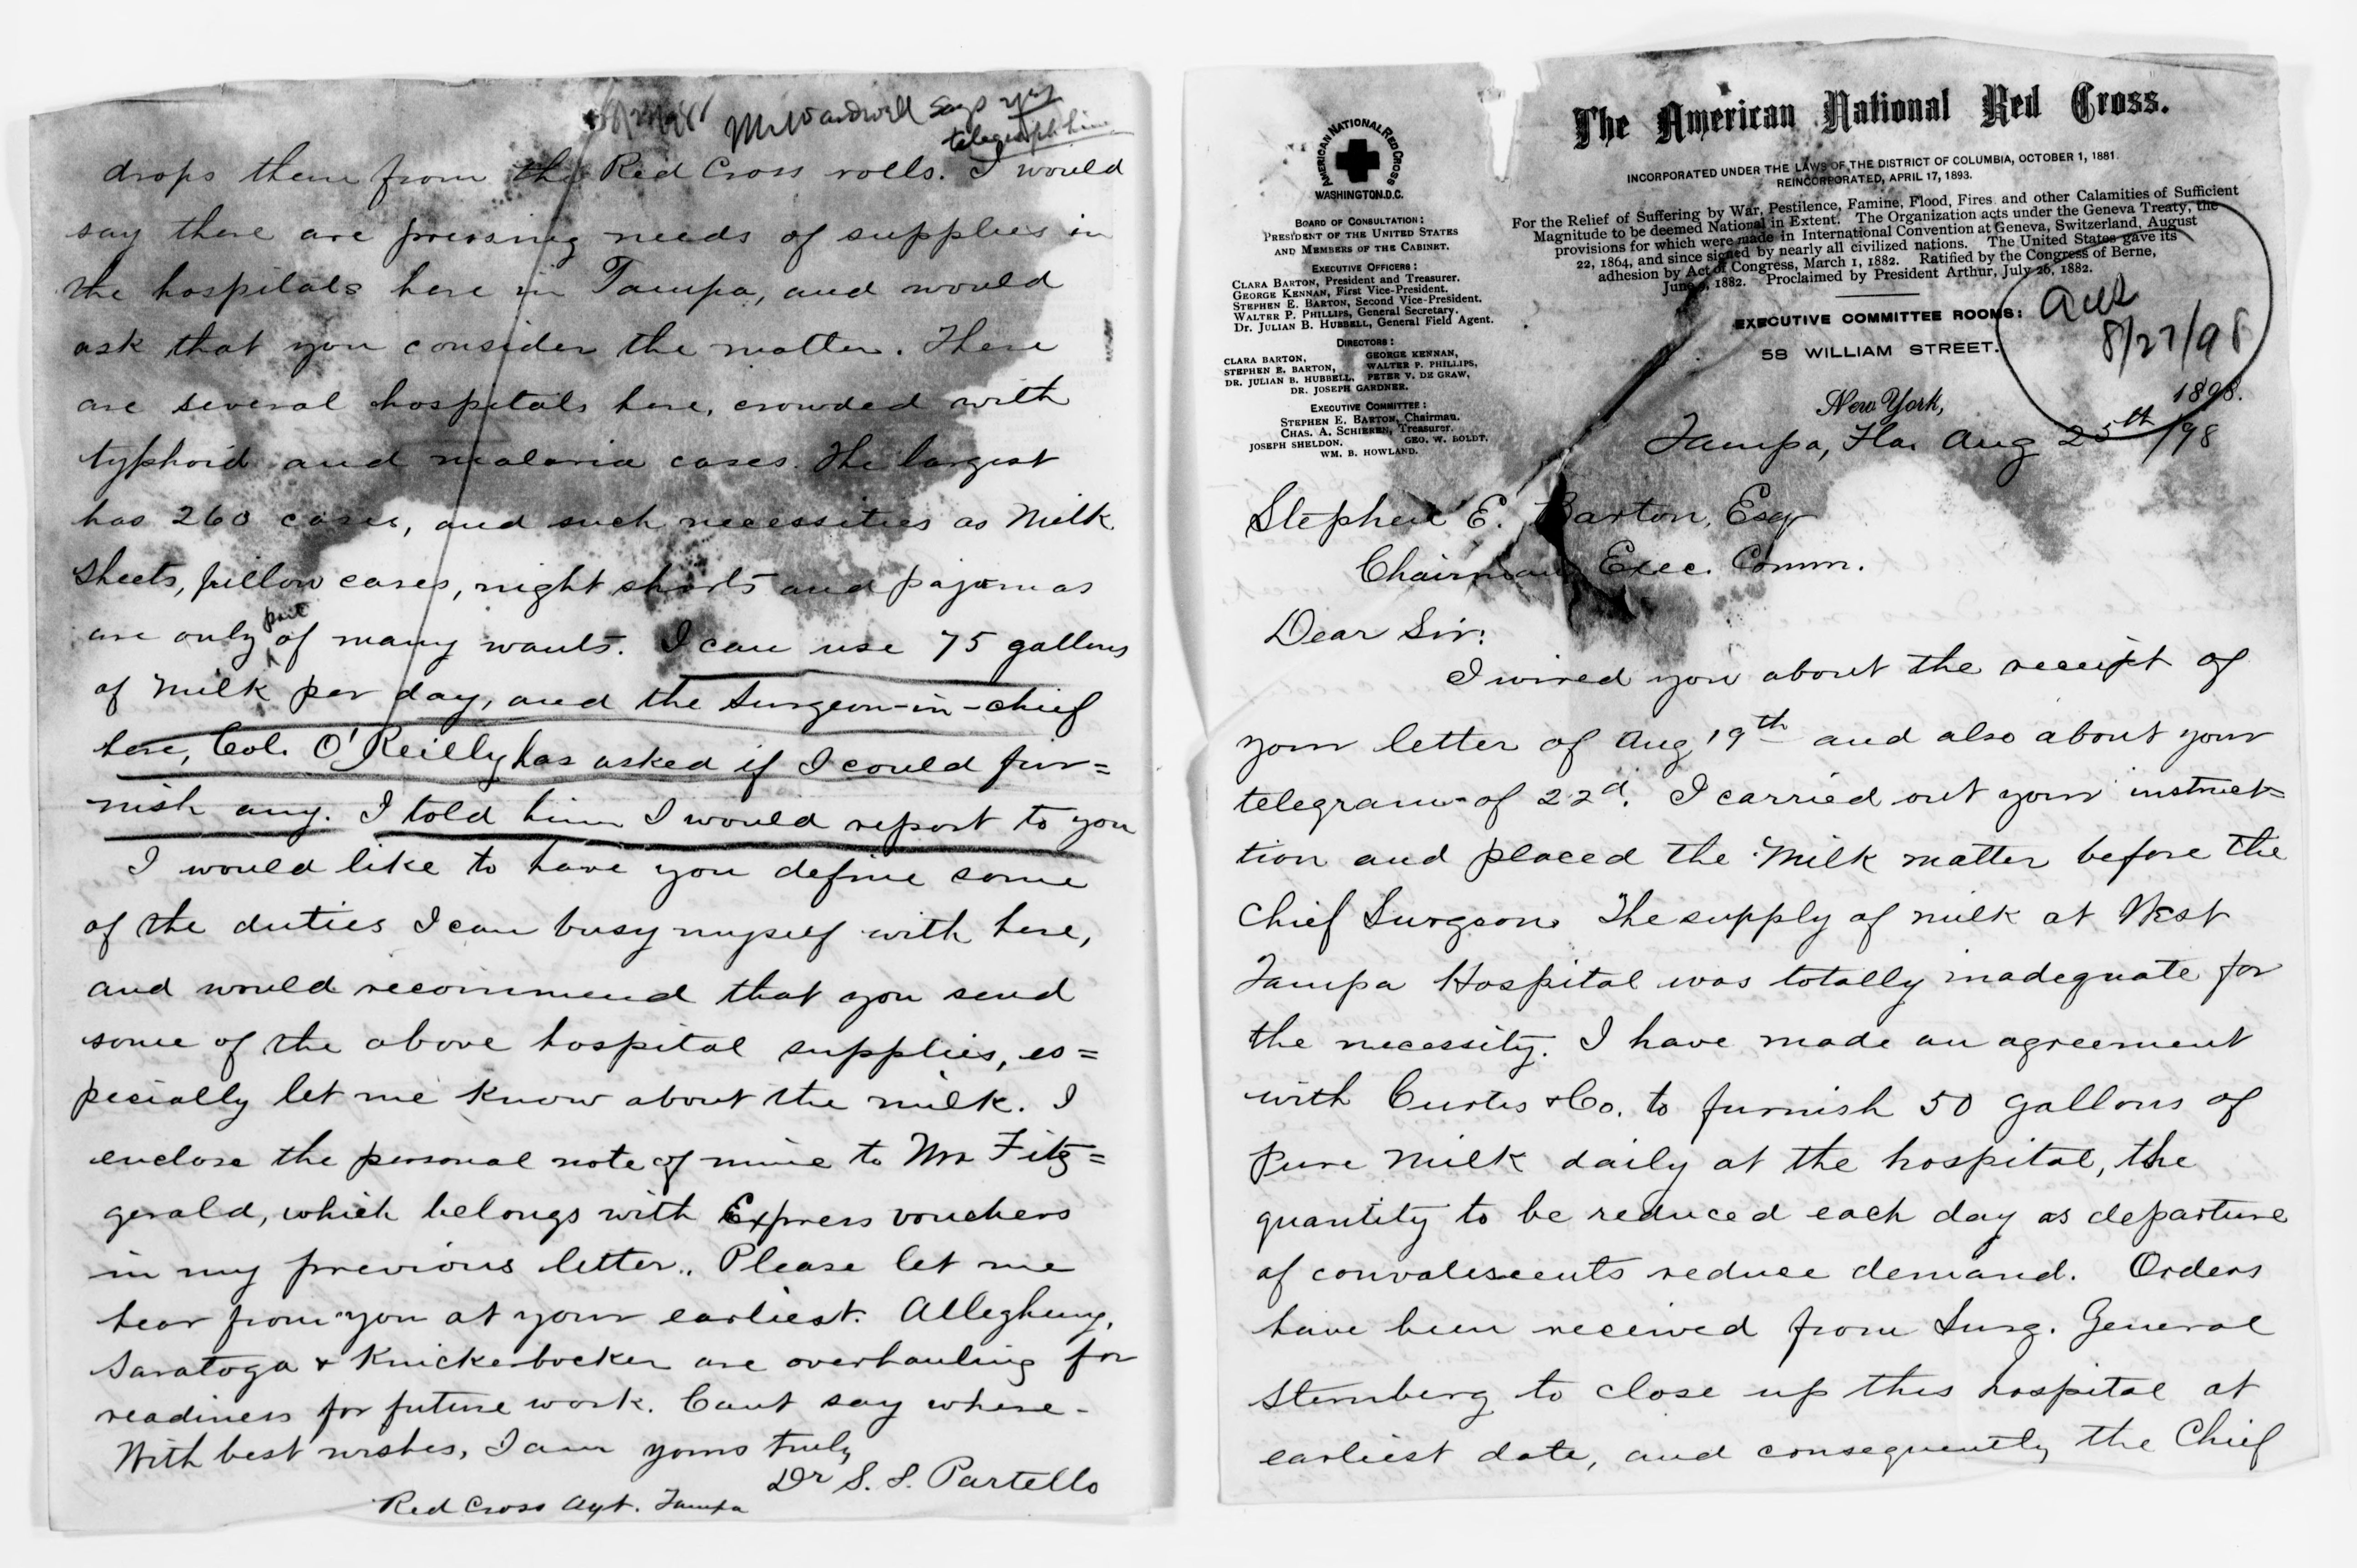 Mr Wardwell says yes
telegraph him
drops them from the Red Cross rolls. I would
say there are pressing needs of supplies in
the hospitals here in Tampa, and would
ask that you consider the matter. There
are several hospitals here, crowded with
typhoid and malaria cases. The largest
has 260 cases, and such necessities as Milk
Sheets, pillow cases, night shirts and pajamas
are only part of many wants. I can use 75 gallons
of Milk per day, and the Surgeon-in-chief
here, Col. O'Reilly has asked if I could fur=
nish any. I told him I would report to you
I would like to have you define some
of the duties I can busy myself with here,
and would recommend that you send
some of the above hospital supplies, es=
pecially let me know about the milk. I
enclose the personal note of mine to Mr Fitz=
gerald, which belongs with Express vouchers
in my previous letter. Please let me
hear from you at your earliest. Allegheny,
Saratoga & Knickerbocker are overhauling for
readiness for future work. Cant say where-
With best wishes, I am yours truly
Dr S. S. Partello
Red Cross Agt. Tampa
AMERICAN NATIONAL RED CROSS
WASHINGTON.D.C.
BOARD OF CONSULTATION:
PRESIDENT OF THE UNITED STATES
AND MEMBERS OF THE CABINET.
EXECUTIVE OFFICERS:
CLARA BARTON, President and Treasurer.
GEORGE KENNAN, First Vice-President.
STEPHEN E. BARTON, Second Vice-President.
WALTER P. PHILLIPS, General Secretary.
Dr. JULIAN B. HUBBELL, General Field Agent.
DIRECTORS:
CLARA BARTON, GEORGE KENNAN,
STEPHEN E. BARTON, WALTER P. PHILLIPS,
DR. JULIAN B. HUBBELL, PETER V. DE GRAW,
DR. JOSEPH GARDNER.
EXECUTIVE COMMITTEE:
STEPHEN E. BARTON, Chairman.
CHAS. A. SCHIEREN, Treasurer.
JOSEPH SHELDON. GEO. W. BOLDT.
WM. B. HOWLAND.
The American National Red Cross.
INCORPORATED UNDER THE LAWS OF THE DISTRICT OF COLUMBIA, OCTOBER 1, 1881.
REINCORPORATED, APRIL 17, 1893.
For the Relief of Suffering by War, Pestilence, Famine, Flood, Fires and other Calamities of Sufficient
Magnitude to be deemed National in Extent. The Organization acts under the Geneva Treaty, the
provisions for which were made in International Convention at Geneva, Switzerland, August
22, 1864, and since signed by nearly all civilized nations. The United States gave its
adhesion by Act of Congress, March 1, 1882. Ratified by the Congress of Berne,
June 9, 1882. Proclaimed by President Arthur, July 26, 1882.
EXECUTIVE COMMITTEE ROOMS:
58 WILLIAM STREET.
Ack
8/27/98
New York, 1898.
Tampa, Fla. Aug 25th/98
Stephen E. Barton, Esqr
Chairman Exec. Comm.
Dear Sir:
I wired you about the receipt of
your letter of Aug 19th and also about your
telegram of 22d. I carried out your instruct=
tion and placed the Milk matter before the
Chief Surgeon. The supply of milk at West
Tampa Hospital was totally inadequate for
the necessity. I have made an agreement
with Curtis & Co. to furnish 50 gallons of
Pure Milk daily at the hospital, the
quantity to be reduced each day as departure
of convalescents reduce demand. Orders
have been received from Surg. General
Sternberg to close up this hospital at
earliest date, and consequently the Chief